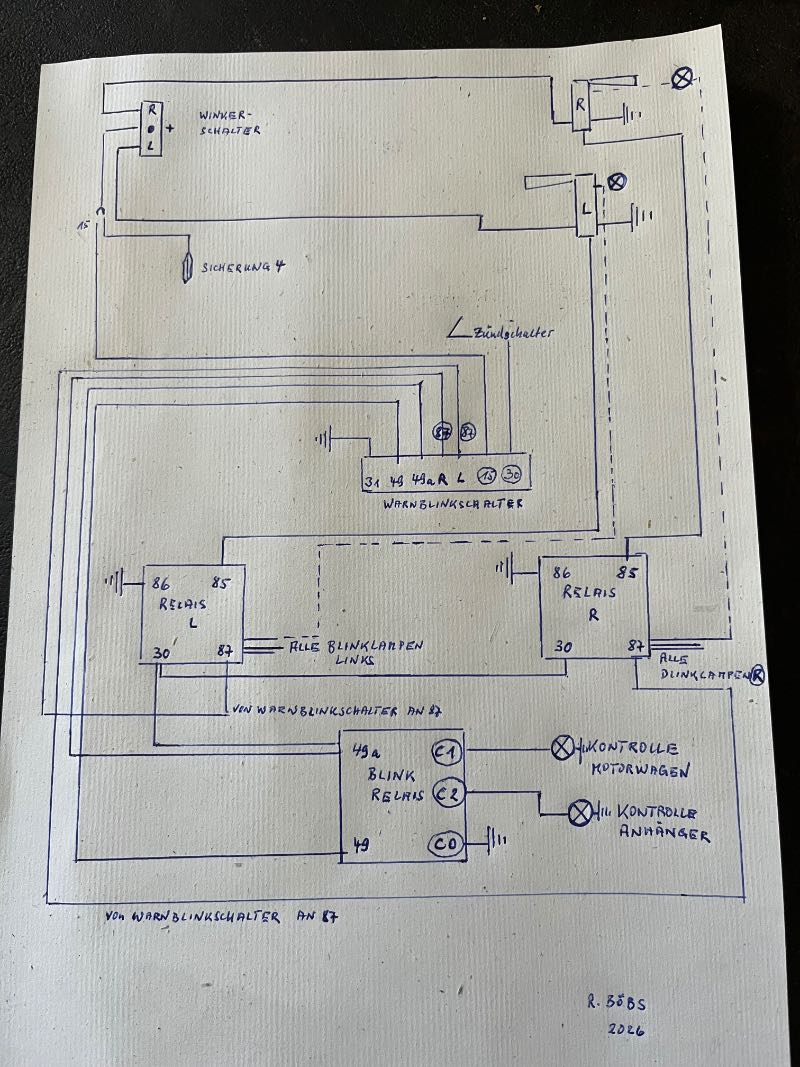 R
WINKER-
SCHALTER
+
L
R
L
15
SICHERUNG 4
Zündschalter
87 87
31 49 49a R L 15 30
WARNBLINKSCHALTER
86 85
RELAIS
L
30 87
ALLE BLINKLAMPEN
LINKS
86 85
RELAIS
R
30 87
ALLE
BLINKLAMPEN R
VON WARNBLINKSCHALTER AN 87
49a C1
BLINK
RELAIS C2
49 C0
KONTROLLE
MOTORWAGEN
KONTROLLE
ANHÄNGER
VON WARNBLINKSCHALTER AN 87
R. BÖBS
2026